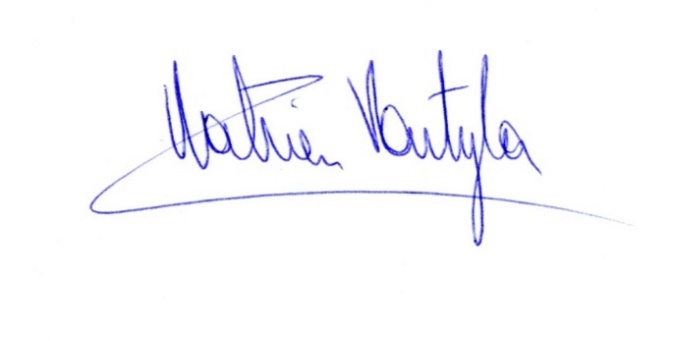 Mathieu Vantyla